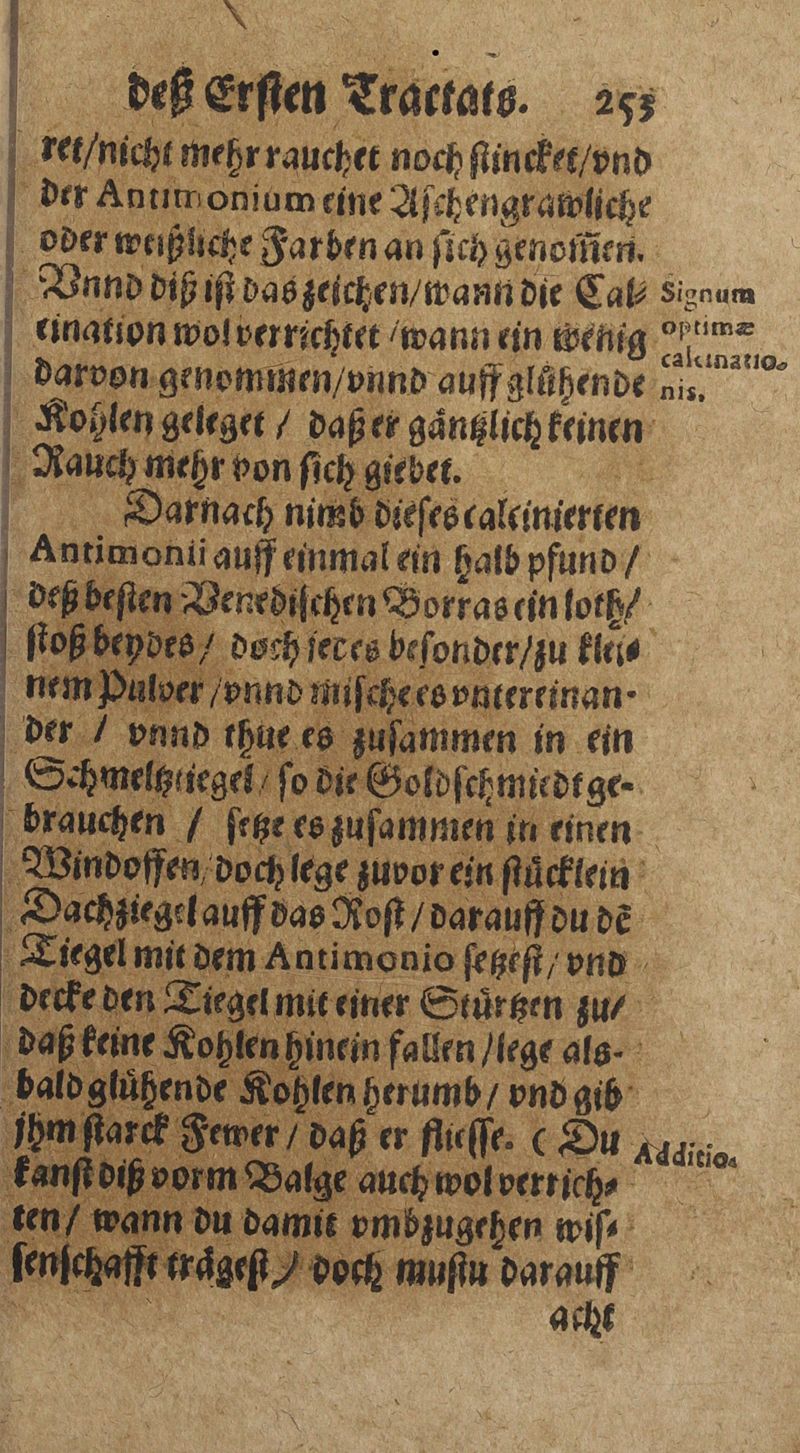 deß Ersten Tractats. 253
ret/nicht mehr rauchet noch stincket/vnd
der Antimonium eine Aschengrawliche
oder weißliche Farben an sich genom̃en.
Vnnd diß ist das zeichen/wann die Cal-
cination wol verrichtet/wann ein wenig
darvon genommen/vnnd auff glůhende
Kohlen geleget / daß er gäntzlich keinen
Rauch mehr von sich giebet.
Signum
optimæ
calcinatio-
nis.
Darnach nimb dieses calcinierten
Antimonii auff einmal ein halb pfund /
deß besten Venedischen Borras ein loth/
stoß beydes/ doch jedes besonder/zu klei-
nem Pulver/vnnd mische es vntereinan-
der / vnnd thue es zusammen in ein
Schmeltztiegel/ so die Goldschmiedt ge-
brauchen / setze es zusammen in einen
Windoffen/doch lege zuvor ein stůcklein
Dachziegel auff das Rost/darauff du dē
Tiegel mit dem Antimonio setzest/vnd
decke den Tiegel mit einer Stůrtzen zu/
daß keine Kohlen hinein fallen/lege als-
bald glůhende Kohlen herumb/ vnd gib
jhm starck Fewer/ daß er fliesse. ( Du
kanst diß vorm Balge auch wol verrich-
ten/ wann du damit vmbzugehen wis-
senschafft trägest) doch mustu darauff
Additio.
acht